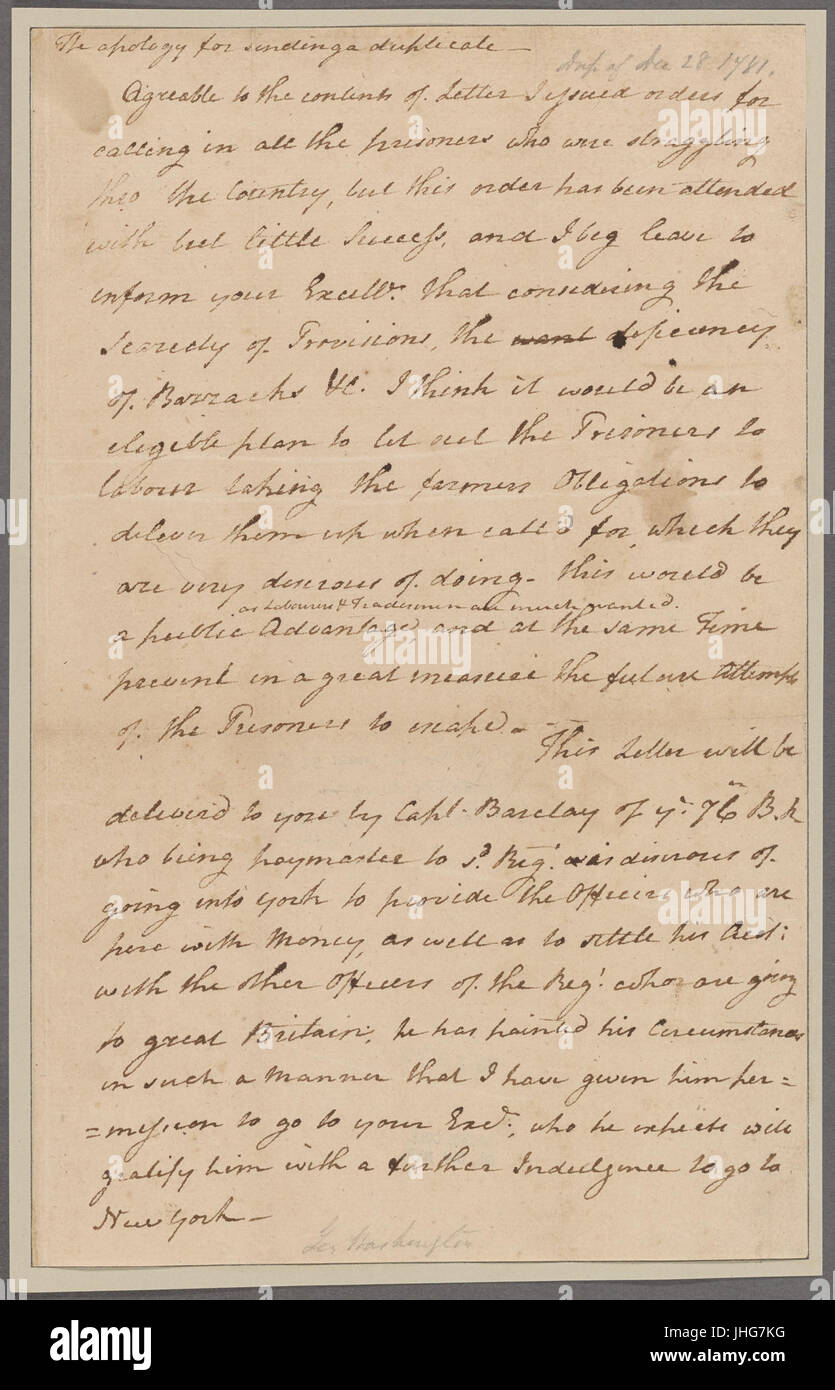 The apology for sending a duplicate —
Dup of Dec 28 1781.
Agreable to the contents of Letter I issued orders for
calling in all the prisoners who were straggling
thro the Country, but this order has been attended
with but little Success, and I beg leave to
inform your Excell.y that considering the
Scarcity of Provisions, the want deficiency
of Barracks &c. I think it would be an
elegible plan to let out the Prisoners to
labour taking the farmers Obligations to
deliver them up when call'd for, which they
are very desirous of doing - this would be
as Labourers & Tradesmen are much wanted.
a public Advantage, and at the same Time
prevent in a great measure the future Attempts
of the Prisoners to escape. —
This Letter will be
deliver'd to you by Capt. Barclay of ye. 76th B. R
who being paymaster to sd. Regt. is desirous of
going into York to provide the Officers who are
here with Money, as well as to settle his Acct:
with the other Officers of the Regt. who are going
to great Britain; he has painted his Circumstances
in such a Manner that I have given him per=
=mission to go to your Excy., who he expects will
gratify him with a further Indulgence to go to
New York —
Geo Washington
alamy
alamy
alamy
alamy
alamy
Image ID: JHG7KG
www.alamy.com